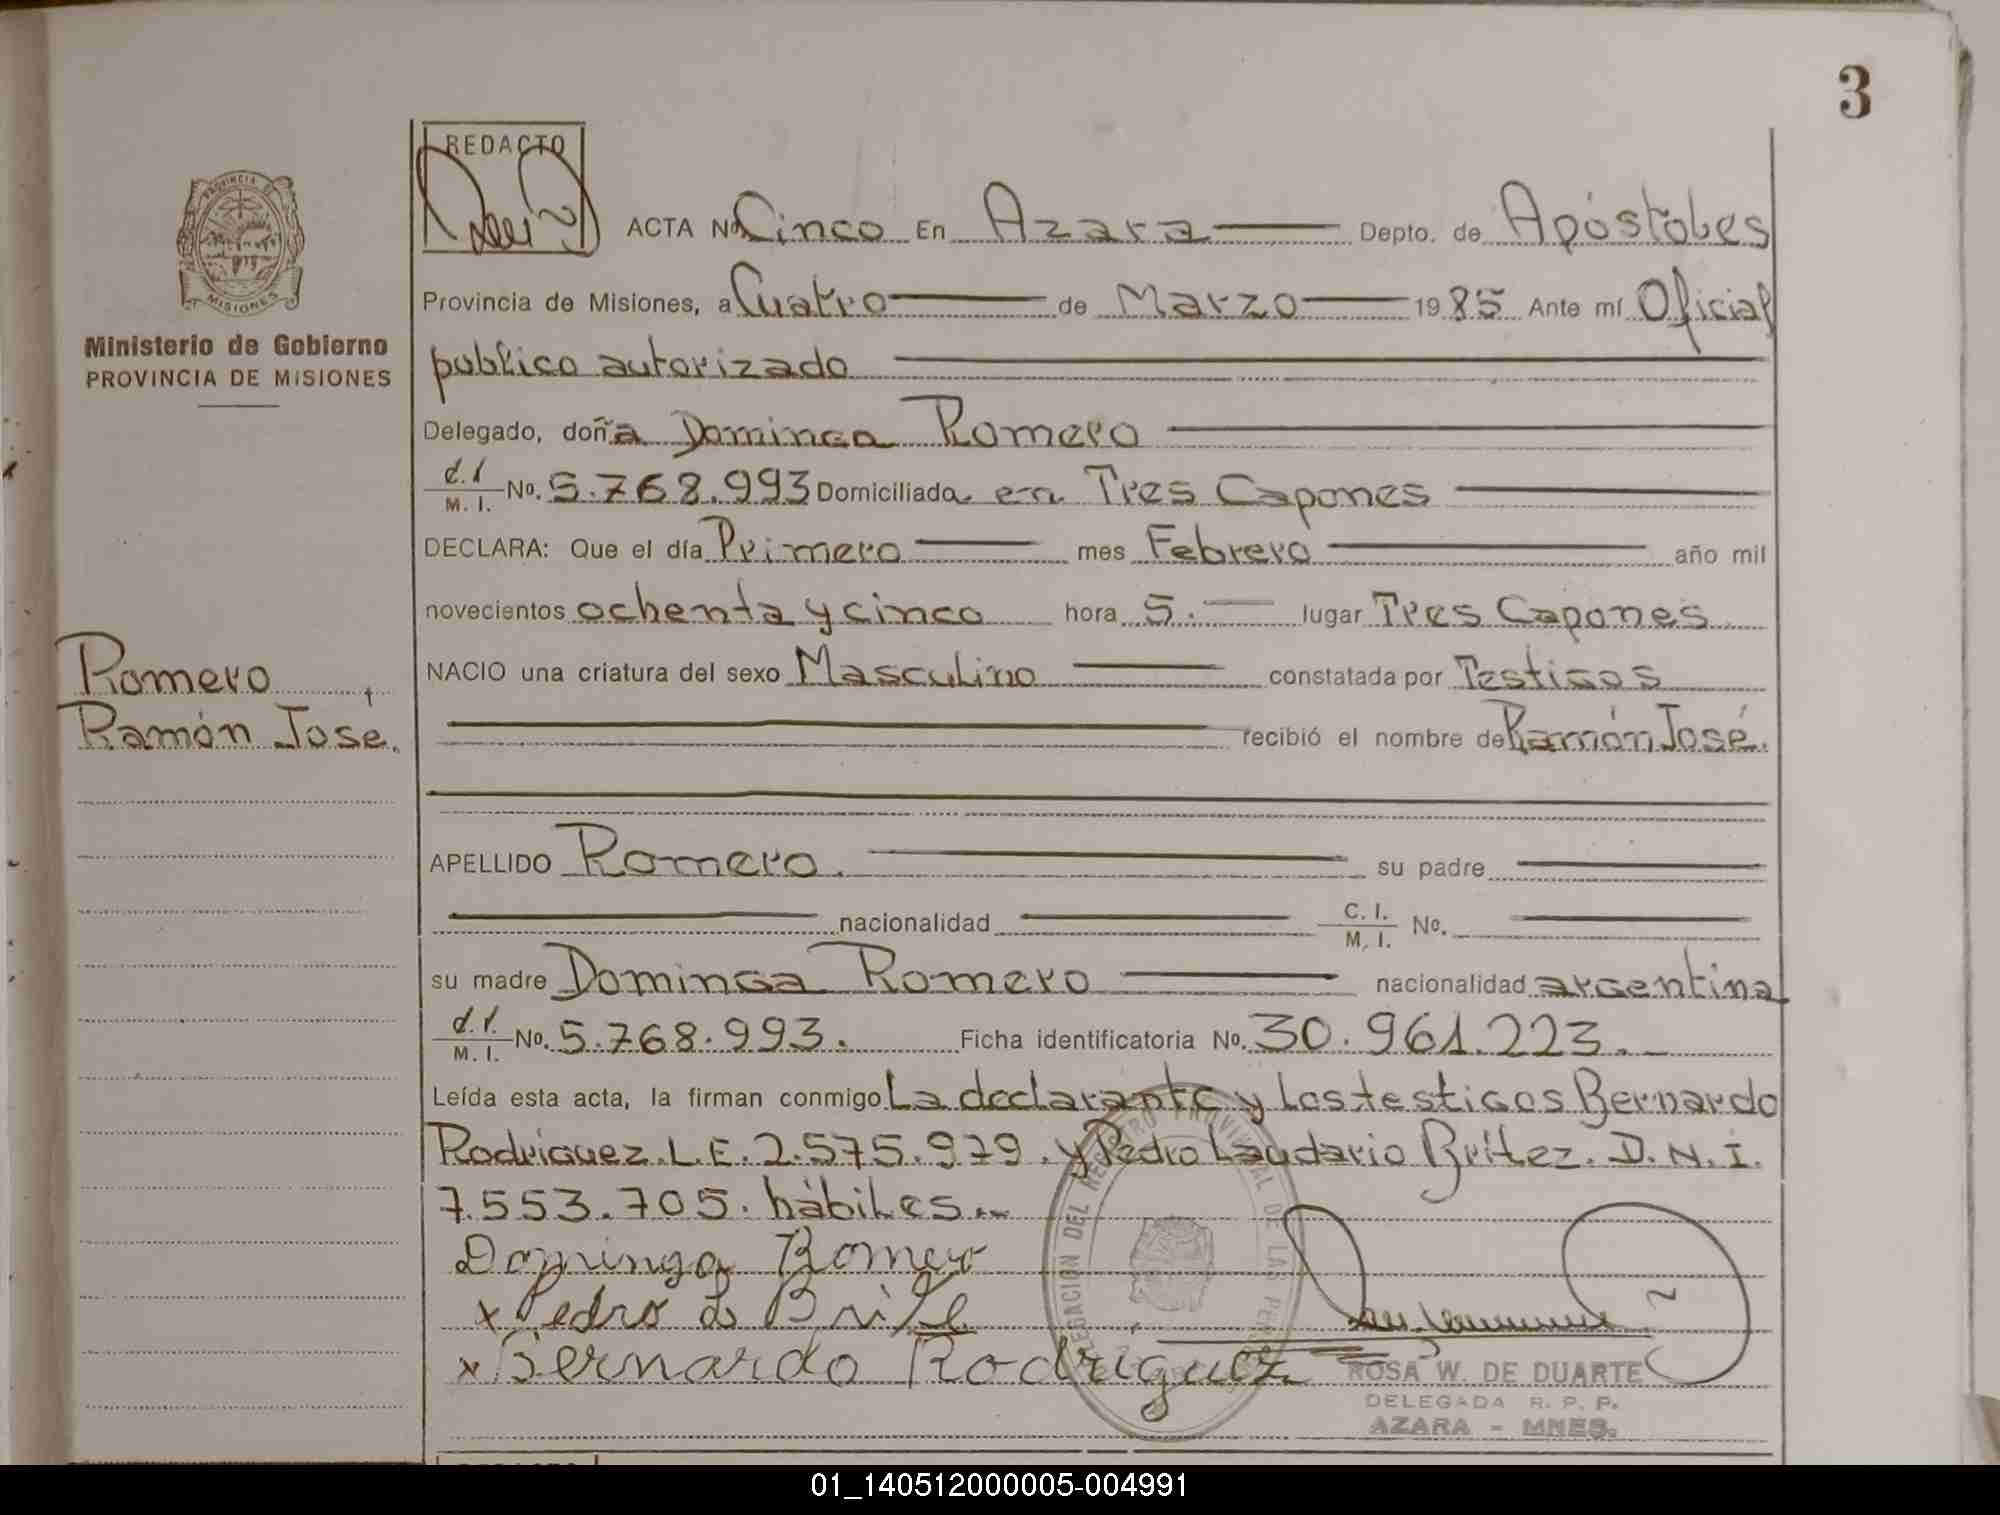 3
REDACTO
ACTA No Cinco En Azara Depto. de Apóstoles
Provincia de Misiones, a Cuatro de Marzo 1985 Ante mí Oficial
público autorizado
Delegado, doña Dominga Romero
d.I
M. I. No. 5.768.993 Domiciliada en Tres Capones
DECLARA: Que el día Primero mes Febrero año mil
novecientos ochenta y cinco hora 5. lugar Tres Capones
NACIO una criatura del sexo Masculino constatada por Testigos
recibió el nombre de Ramón José.
APELLIDO Romero. su padre
nacionalidad C. I.
M. I. No.
su madre Dominga Romero nacionalidad argentina
d.I.
M. I. No. 5.768.993. Ficha identificatoria No. 30.961.223.
Leída esta acta, la firman conmigo La declarante y los testigos Bernardo
Rodríguez. L.E. 2.575.979. y Pedro Laudario Brítez. D.N.I.
7.553.705. hábiles.
Dominga Romero
x Pedro
x Bernardo Rodriguez
ROSA W. DE DUARTE
DELEGADA R. P. P.
AZARA - MNES.
PROVINCIA DE
MISIONES
Ministerio de Gobierno
PROVINCIA DE MISIONES
Romero,
Ramón José.
01_140512000005-004991